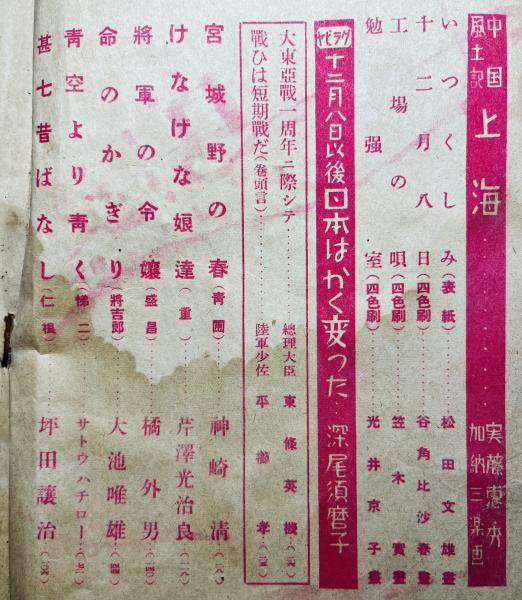 中国風土記 上海 実藤恵秀 加納三楽画
いつくしみ(表紙) 松田文雄畫
十二月八日(四色刷) 谷角比沙春畫
工場の唄(四色刷) 笠木實畫
勉強室(四色刷) 光井京子畫
グラビヤ 十二月八日以後日本はかく変つた 深尾須磨子
大東亞戰一周年ニ際シテ 總理大臣 東條英機
戰ひは短期戰だ(卷頭言) 陸軍少佐 平櫛孝
宮城野の春(青圃) 神崎清
けなげな娘達(重) 芹澤光治良
將軍の令孃(盛昌) 橘外男
命のかぎり(將吉郎) 大池唯雄
青空より青く(悌二) サトウハチロー
甚七昔ばなし(仁禮) 坪田讓治